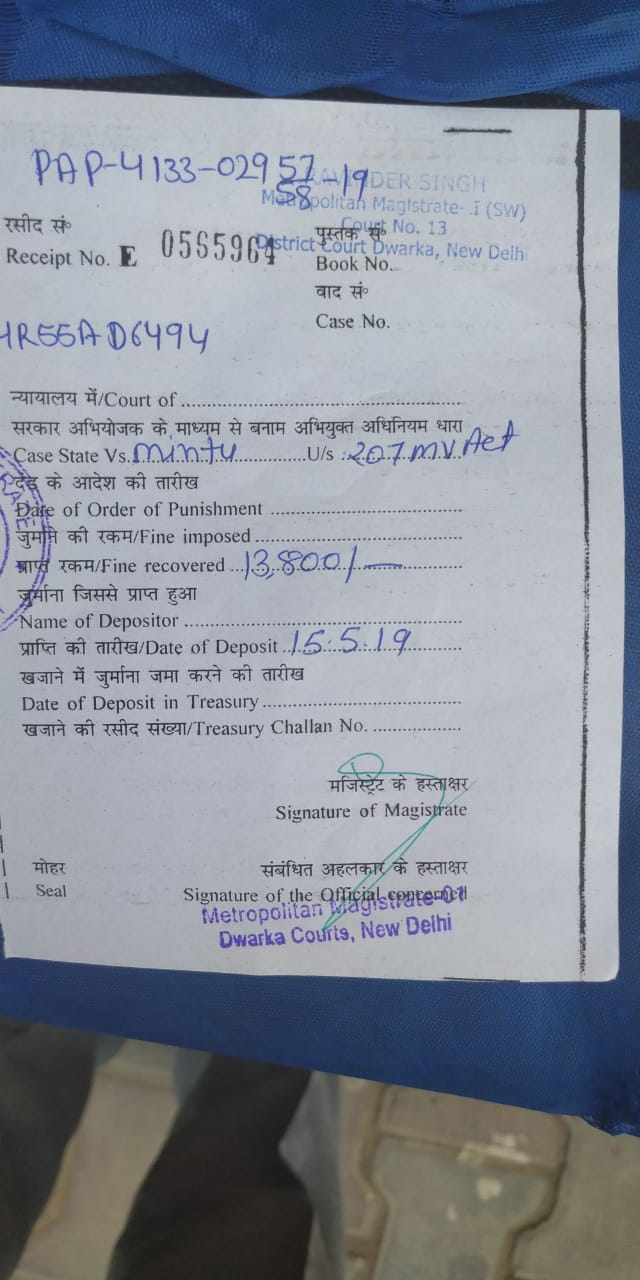 PAP-4133-02957-19
58
RAVINDER SINGH
Metropolitan Magistrate-.I (SW)
Court No. 13
District Court Dwarka, New Delhi
रसीद सं॰
Receipt No. E 0565964
पुस्तक सं॰
Book No.
वाद सं॰
Case No.
HR55AD6494
न्यायालय में/Court of ..........
सरकार अभियोजक के माध्यम से बनाम अभियुक्त अधिनियम धारा
Case State Vs. Mintu ..........U/s : 207 MV Act
दंड के आदेश की तारीख
Date of Order of Punishment ..........
जुर्माने की रकम/Fine imposed ..........
प्राप्त रकम/Fine recovered ...13,800/-
जुर्माना जिससे प्राप्त हुआ
Name of Depositor ..........
प्राप्ति की तारीख/Date of Deposit ..15.5.19
खजाने में जुर्माना जमा करने की तारीख
Date of Deposit in Treasury ..........
खजाने की रसीद संख्या/Treasury Challan No. ..........
मजिस्ट्रेट के हस्ताक्षर
Signature of Magistrate
मोहर
Seal
संबंधित अहलकार के हस्ताक्षर
Signature of the Official concerned
Metropolitan Magistrate-01
Dwarka Courts, New Delhi